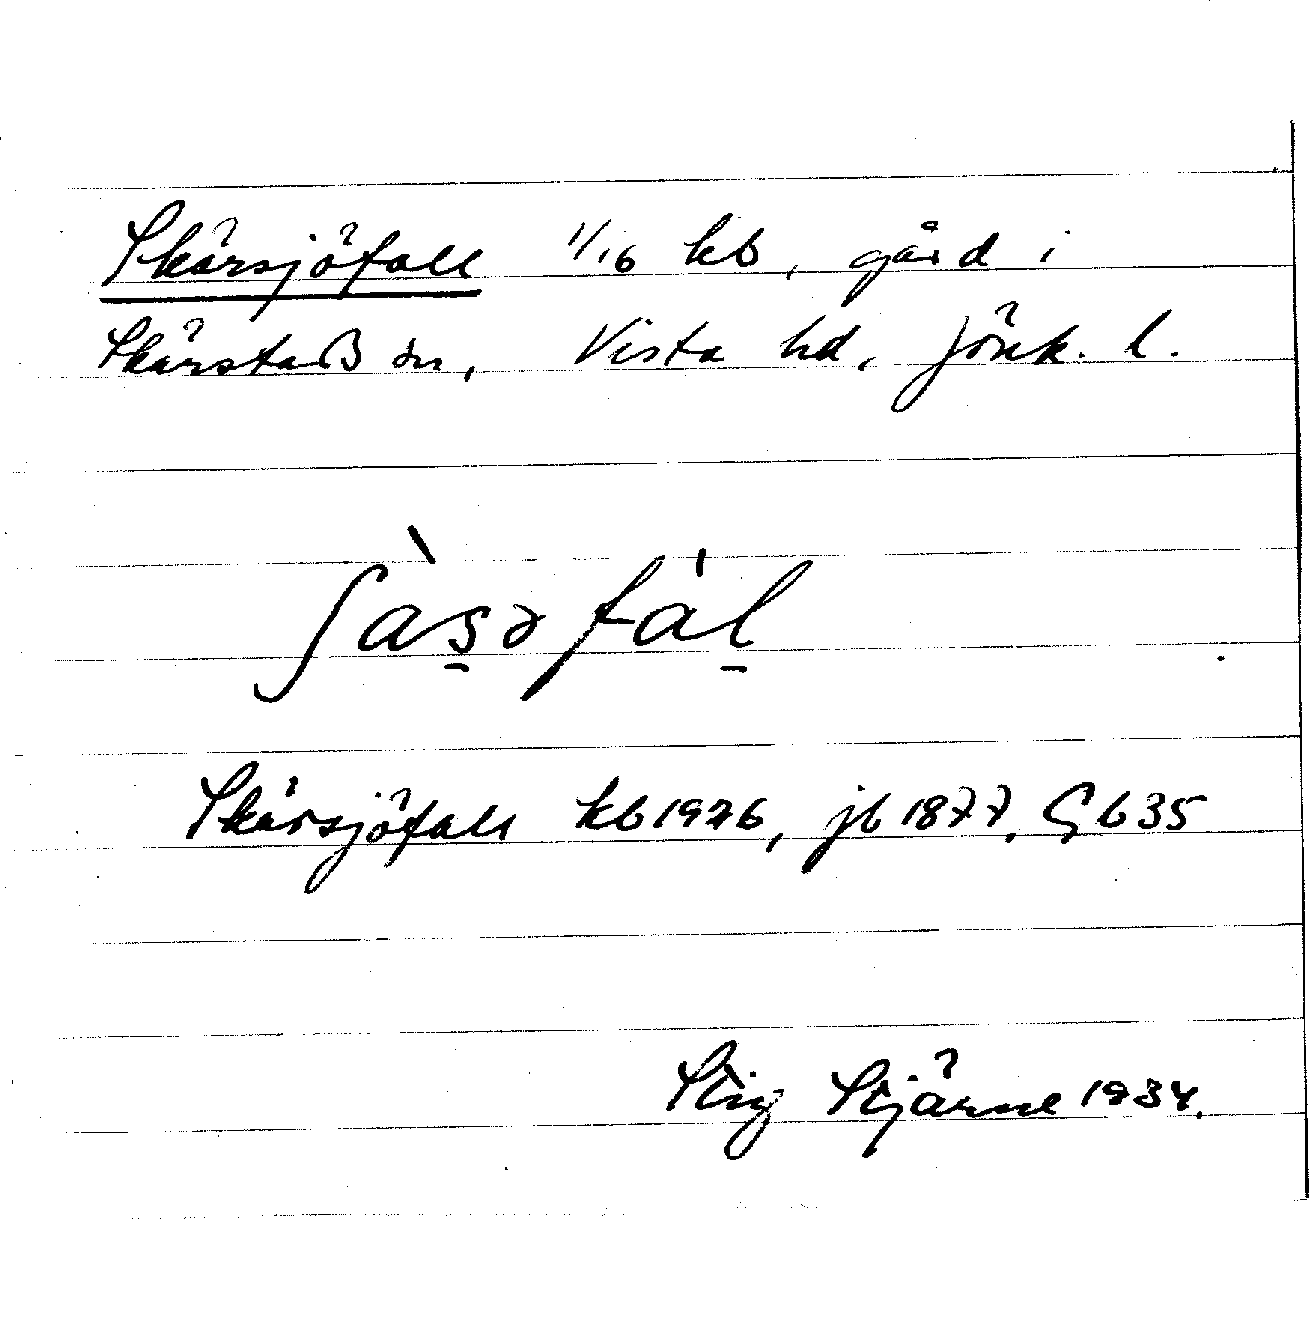 Skärsjöfall 1/16 kb, gård i
Skärstads sn, Vista hd, Jönk. l.
ʃàs̱əfa̍ḻ
Skärsjöfall kb 1926, jb 1877, Gb 35
Stig Stjärne 1934.